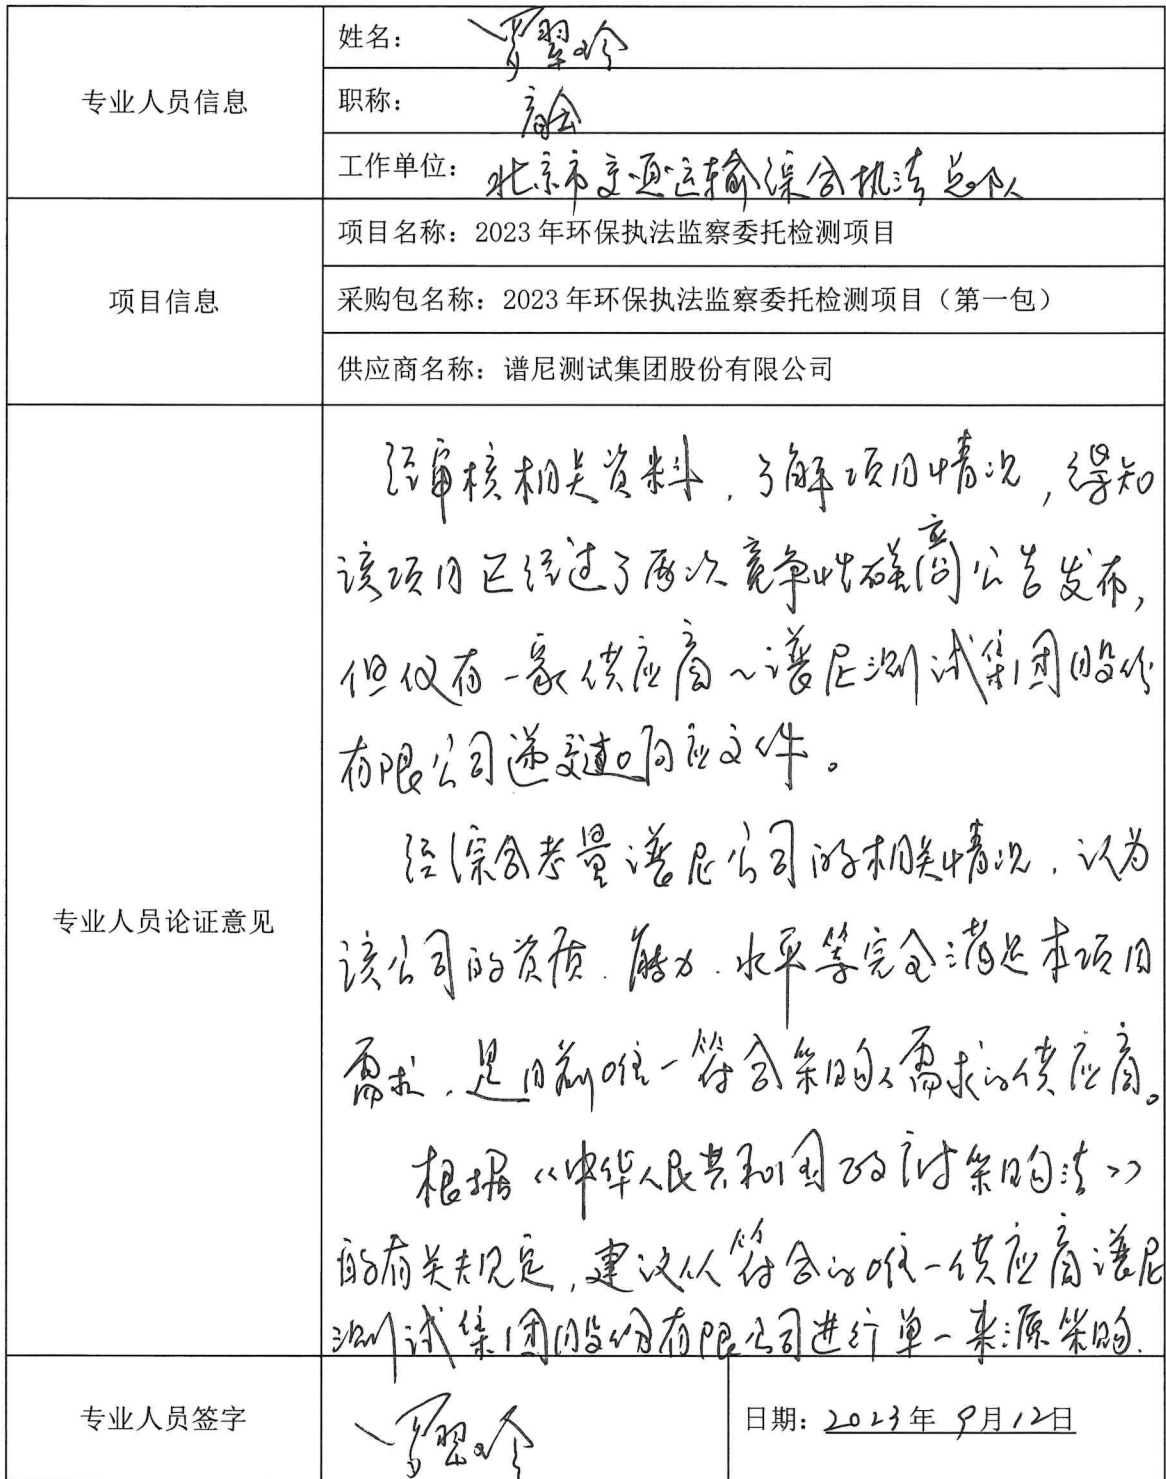 专业人员信息
姓名：
职称：高会
工作单位：北京市交通运输综合执法总队
项目信息
项目名称：2023年环保执法监察委托检测项目
采购包名称：2023年环保执法监察委托检测项目（第一包）
供应商名称：谱尼测试集团股份有限公司
专业人员论证意见
经审核相关资料，了解项目情况，得知
该项目已经过了两次竞争性磋商公告发布，
但仅有一家供应商~谱尼测试集团股份
有限公司递交过响应文件。
经综合考量谱尼公司的相关情况，认为
该公司的资质、能力、水平等完全满足本项目
需求，是目前唯一符合采购需求的供应商。
根据《中华人民共和国政府采购法》
的有关规定，建议从符合的唯一供应商谱尼
测试集团股份有限公司进行单一来源采购.
专业人员签字
日期：2023年9月12日